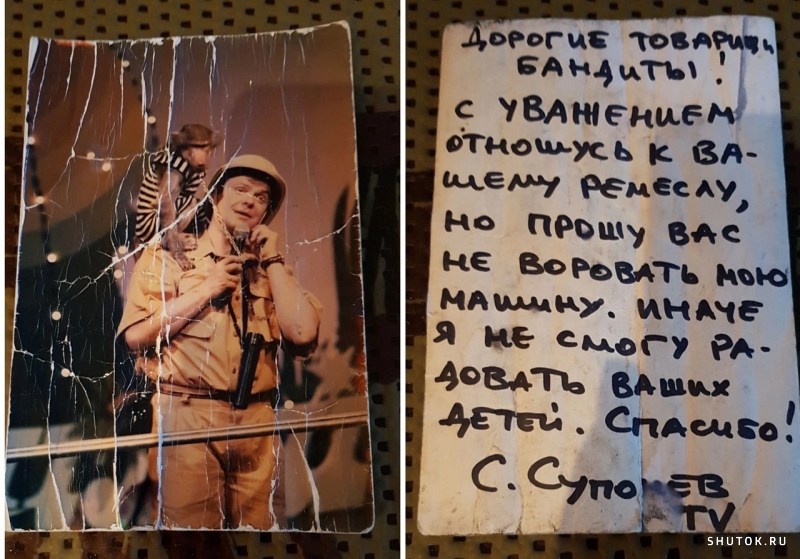 ДОРОГИЕ ТОВАРИЩИ
БАНДИТЫ!
С УВАЖЕНИЕМ
ОТНОШУСЬ К ВА-
ШЕМУ РЕМЕСЛУ,
НО ПРОШУ ВАС
НЕ ВОРОВАТЬ МОЮ
МАШИНУ. ИНАЧЕ
Я НЕ СМОГУ РА-
ДОВАТЬ ВАШИХ
ДЕТЕЙ. СПАСИБО!
С. Супонев
TV
SHUTOK.RU